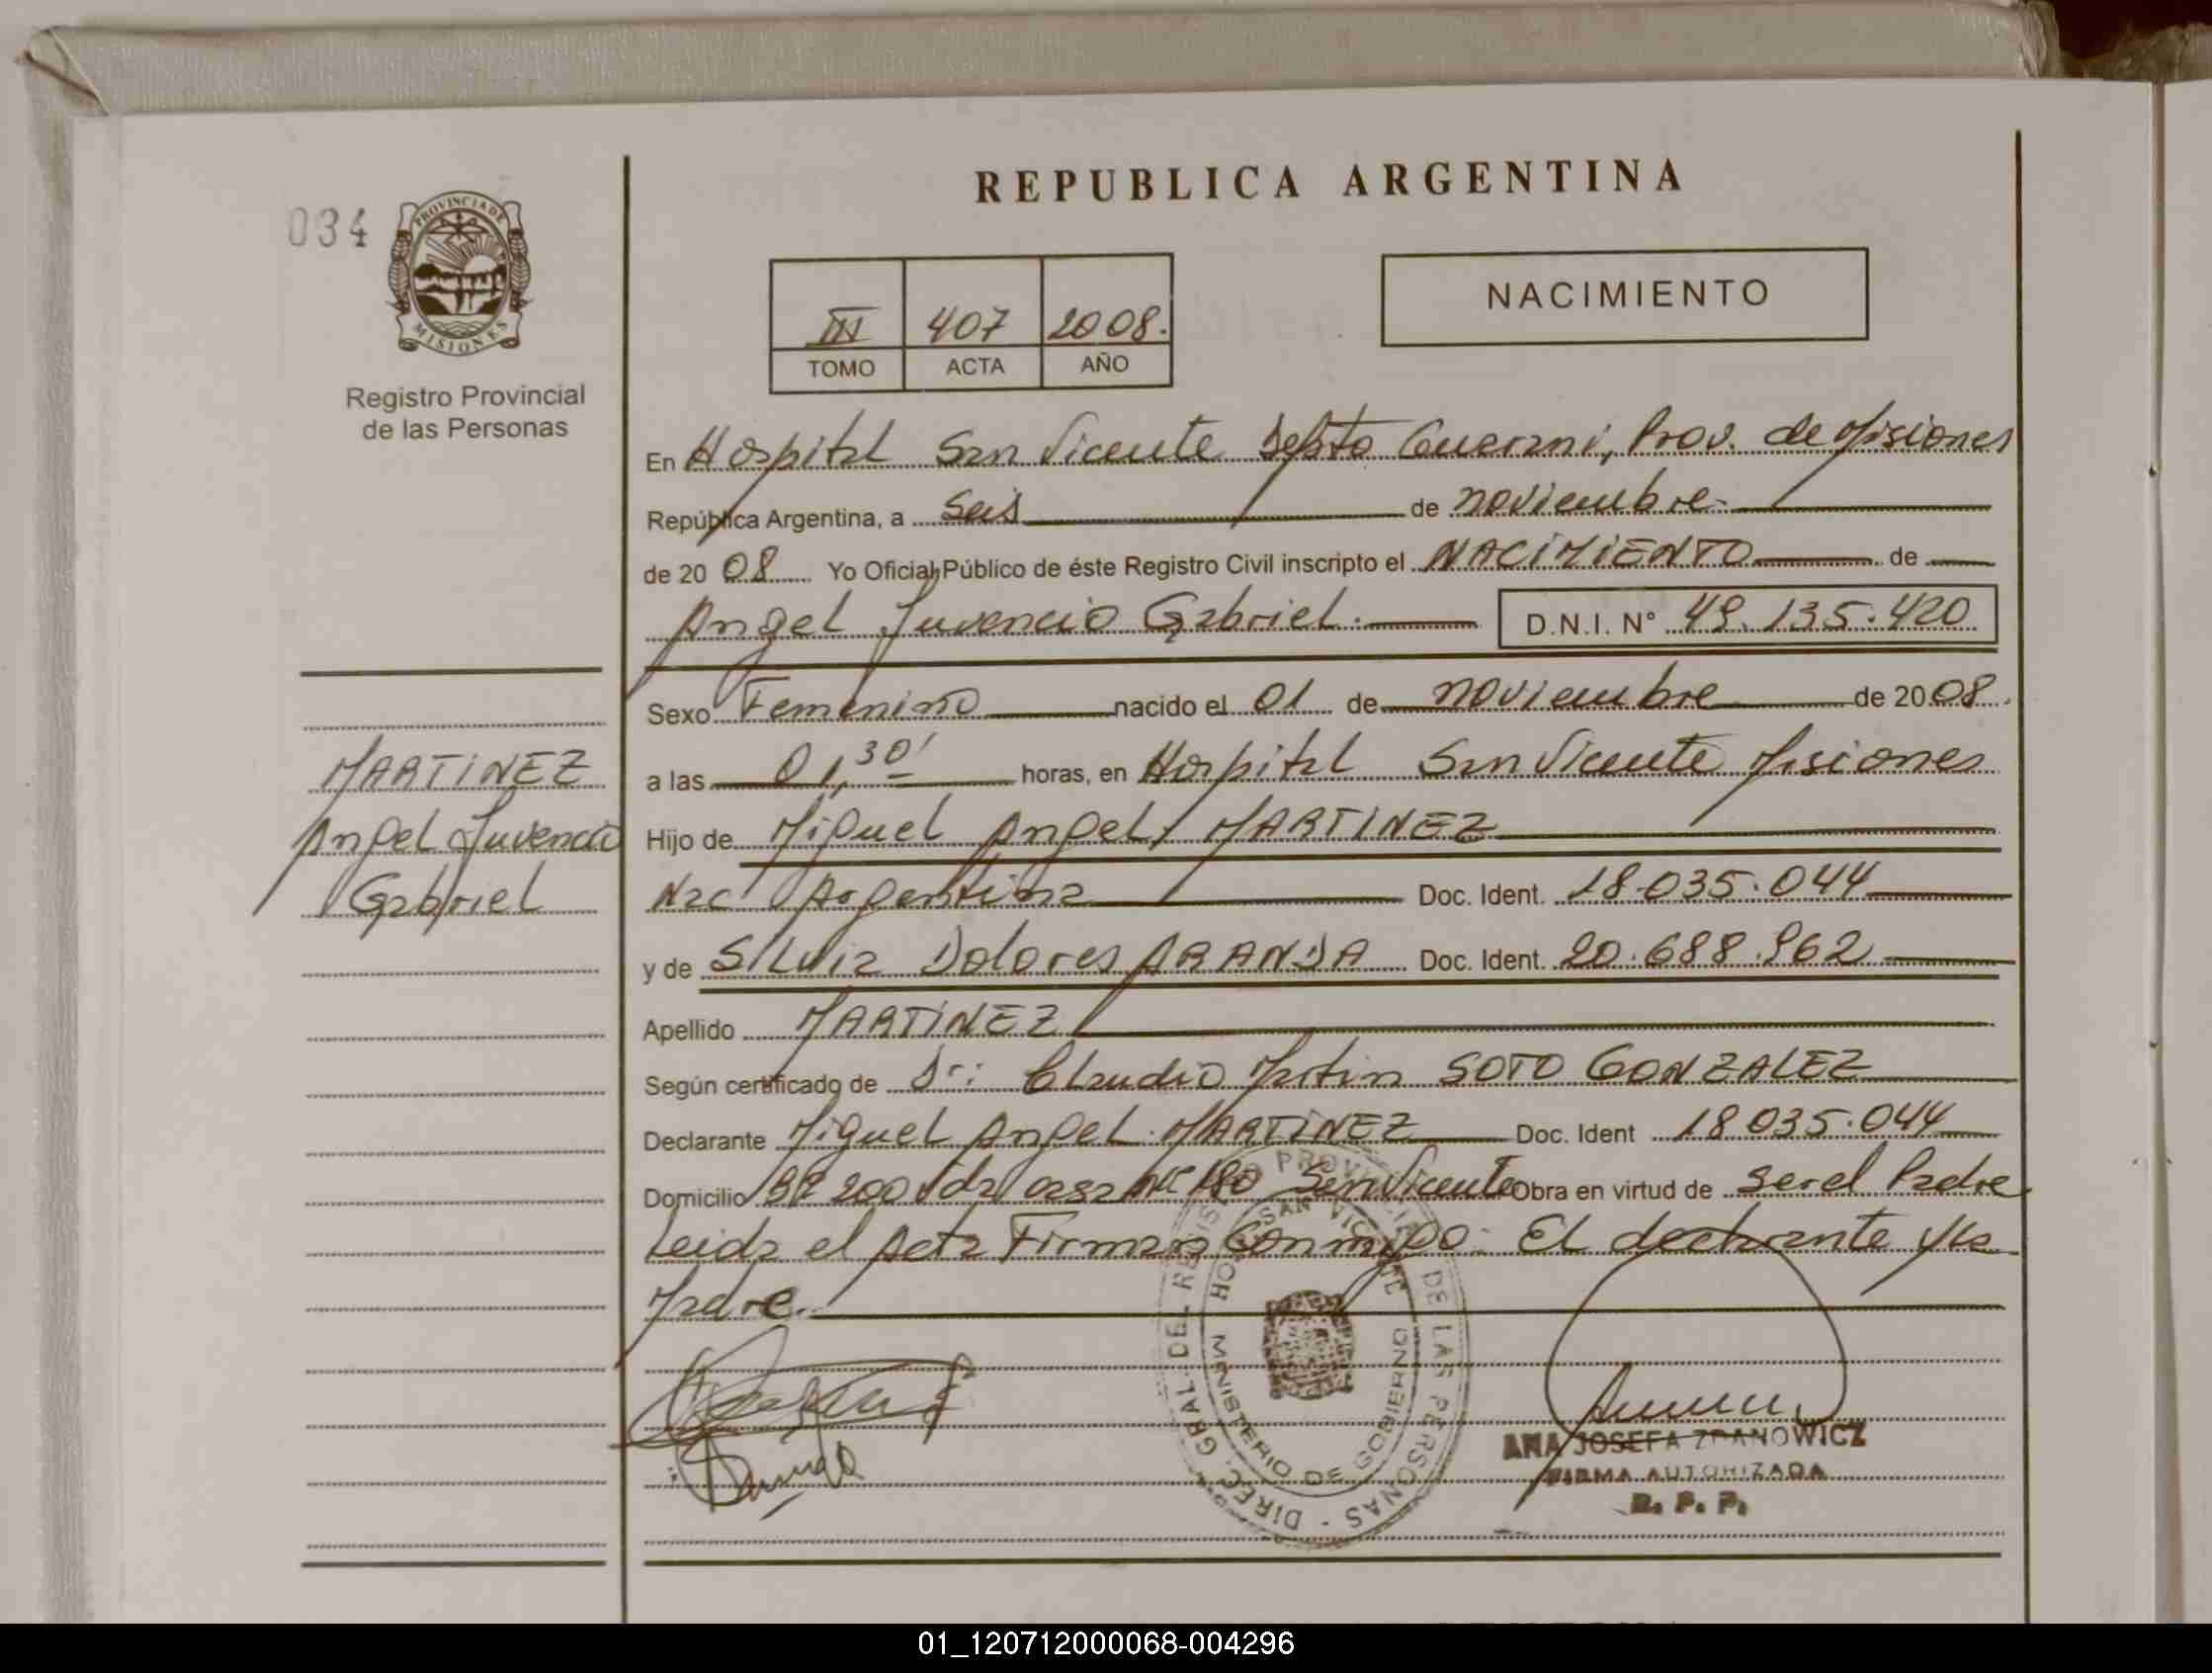 REPUBLICA ARGENTINA
034
PROVINCIA DE
MISIONES
Registro Provincial
de las Personas
III 407 2008.
TOMO ACTA AÑO
NACIMIENTO
En Hospital San Vicente Depto Guarani, Prov. de Misiones
República Argentina, a Seis de noviembre
de 2008 Yo Oficial Público de éste Registro Civil inscripto el NACIMIENTO de
Angel Juvencio Gabriel. D.N.I. N° 49.135.420
Sexo Femenino nacido el 01 de noviembre de 2008.
a las 01,30' horas, en Hospital San Vicente Misiones
Hijo de Miguel Angel MARTINEZ
Nac Argentina Doc. Ident. 18.035.044
y de Silvia Dolores ARANDA Doc. Ident. 20.688.962
Apellido MARTINEZ
Según certificado de Dr: Claudio Martin SOTO GONZALEZ
Declarante Miguel Angel MARTINEZ Doc. Ident 18.035.044
Domicilio Bº 200 Vda casa Nº 180 San Vicente Obra en virtud de ser el Padre
Leida el Acta Firman Conmigo: El declarante y la
Madre.
MARTINEZ
Angel Juvencio
Gabriel
DIREC. GRAL. DEL REGISTRO PROVINCIAL DE LAS PERSONAS
HOSP. SAN VICENTE
MINISTERIO DE GOBIERNO
ANA JOSEFA ZDANOWICZ
FIRMA AUTORIZADA
R. P. P.
01_120712000068-004296